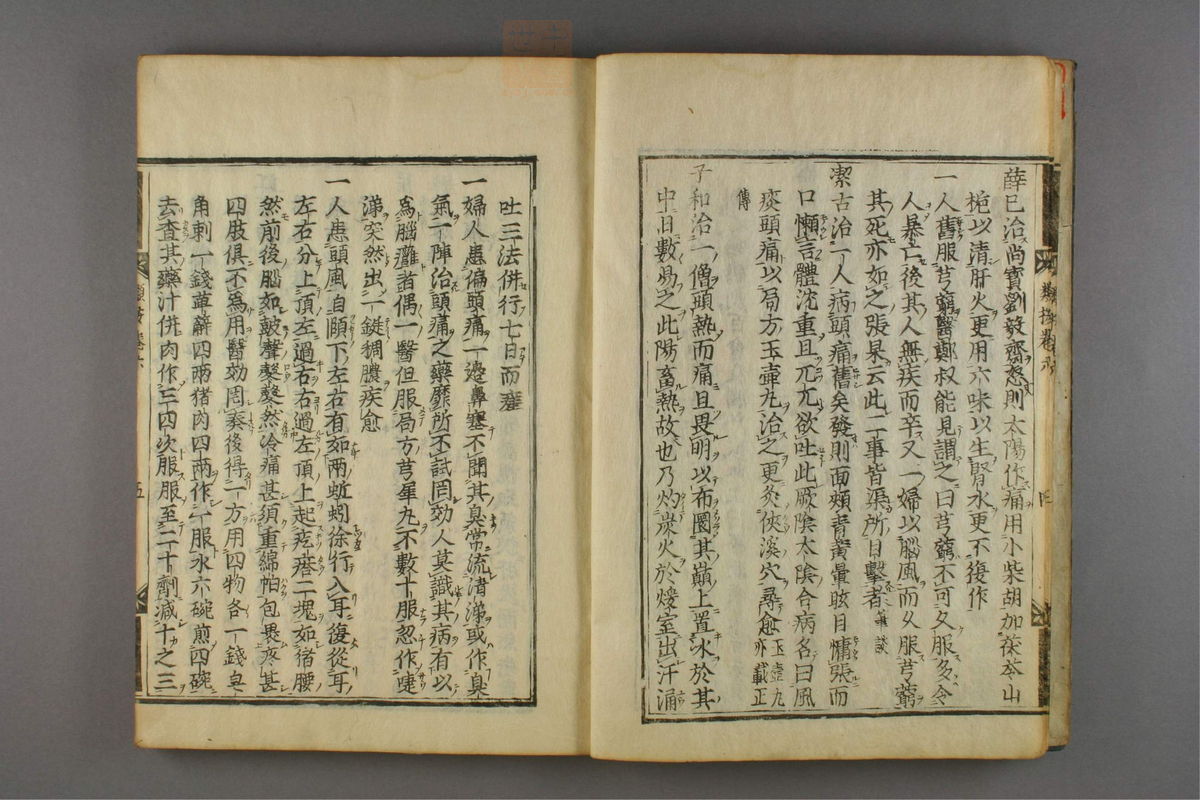 薛已治尚寳劉毅齋怒則太陽作痛用小柴胡加茯苓山
梔以清肝火更用六味以生腎水更不復作
一人舊服芎藭醫鄭叔能見謂之曰芎藭不可久服多令
人暴亡後其人無疾而卒又一婦以腦風而久服芎藭
其死亦如之張杲云此二事皆渠所目擊者筆談
潔古治一人病頭痛舊矣發則面頰青黄暈眩目慵張而
口懶言體沈重且兀兀欲吐此厥陰太陰合病名曰風
痰頭痛以局方玉壷丸治之更灸俠溪穴尋愈玉壷丸亦載正
傳
子和治一僧頭熱而痛且畏明以布圜其巔上置氷於其
中日數易之此陽畜熱故也乃灼炭火於煖室出汗涌
類按卷六
吐三法併行七日而瘥
一婦人患偏頭痛一邉鼻塞不聞其臭常流清涕或作臭
氣一陣治頭痛之藥靡所不試罔効人莫識其病有以
爲腦癰者偶一醫但服局方芎犀丸不數十服忽作嚏
涕突然出一鋌稠膿疾愈
一人患頭風自頤下左右有如兩蚯蚓徐行入耳復從耳
左右分上頂左過右右過左頂上起疙瘩二塊如猪腰
然前後腦如皷聲鼕鼕然冷痛甚須重綿帕包畏疼甚
四肢俱不爲用醫効罔奏後得一方用四物各一錢皂
角刺一錢萆薢四兩猪肉四兩作一服水六碗煎四碗
去査其藥汁併肉作三四次服服至二十劑减十之三
五